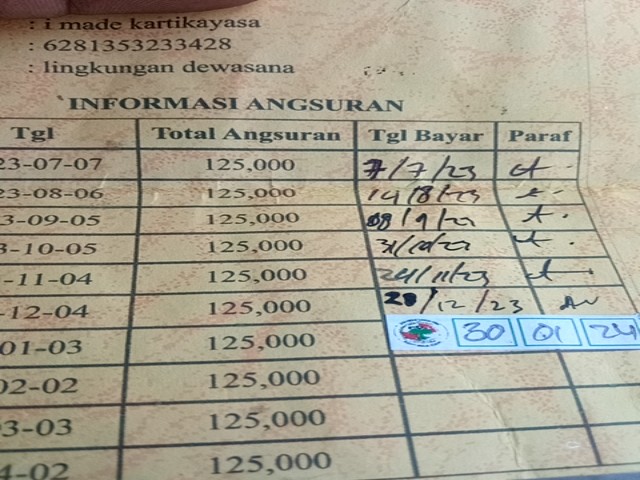 : i made kartikayasa
: 6281353233428
: lingkungan dewasana
INFORMASI ANGSURAN
Tgl Total Angsuran Tgl Bayar Paraf
23-07-07 125,000 7/7/23
23-08-06 125,000 14/8/23
3-09-05 125,000 08/9/23
3-10-05 125,000 31/10/23
-11-04 125,000 24/11/23
-12-04 125,000 28/12/23
01-03 125,000 30 01 24
02-02 125,000
3-03 125,000
4-02 125,000